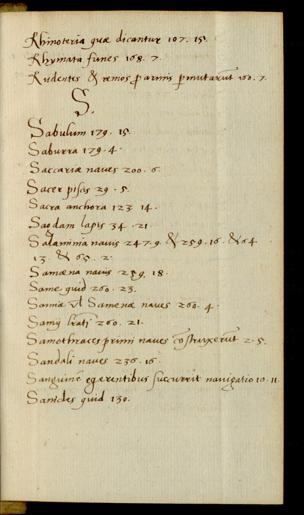 Rhinoteria quæ dicantur 107. 15.
Rhymata funes 168. 7.
Rudentes & remos p armis pmutarūt 160. 7.
S.
Sabulum 179. 15.
Saburra 179. 4.
Saccariæ naves 200. 6.
Sacer piscis 29. 5.
Sacra anchora 123. 14.
Sagdam lapis 34. 21.
Salaminia navis 247. 9. & 259. 16. & 64
13. & 65. 2.
Samæna navis 259. 18.
Same quid 260. 23.
Samia vl Samenæ naves 260. 4.
Samy 260. 21.
Samothraces primi naves cōstruxerūt 2. 5.
Sandali naves 236. 16.
Sanguinē egerentibus succurrit navigatio 10. 11.
Sanides quid 130.